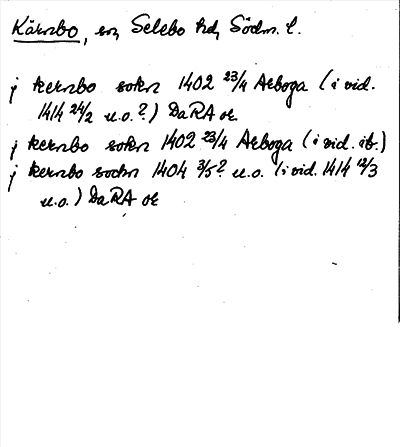 Kärnbo, sn, Selebo hd, Södm. l.
j kernbo sokn 1402 23/4 Arboga (i vid.
1414 24/2 u.o.?) DaRA or
j kernbo sokn 1402 23/4 Arboga (i vid. ib.)
j kernbo sochn 1404 3/5? u.o. (i vid. 1414 12/3
u.o.) DaRA or